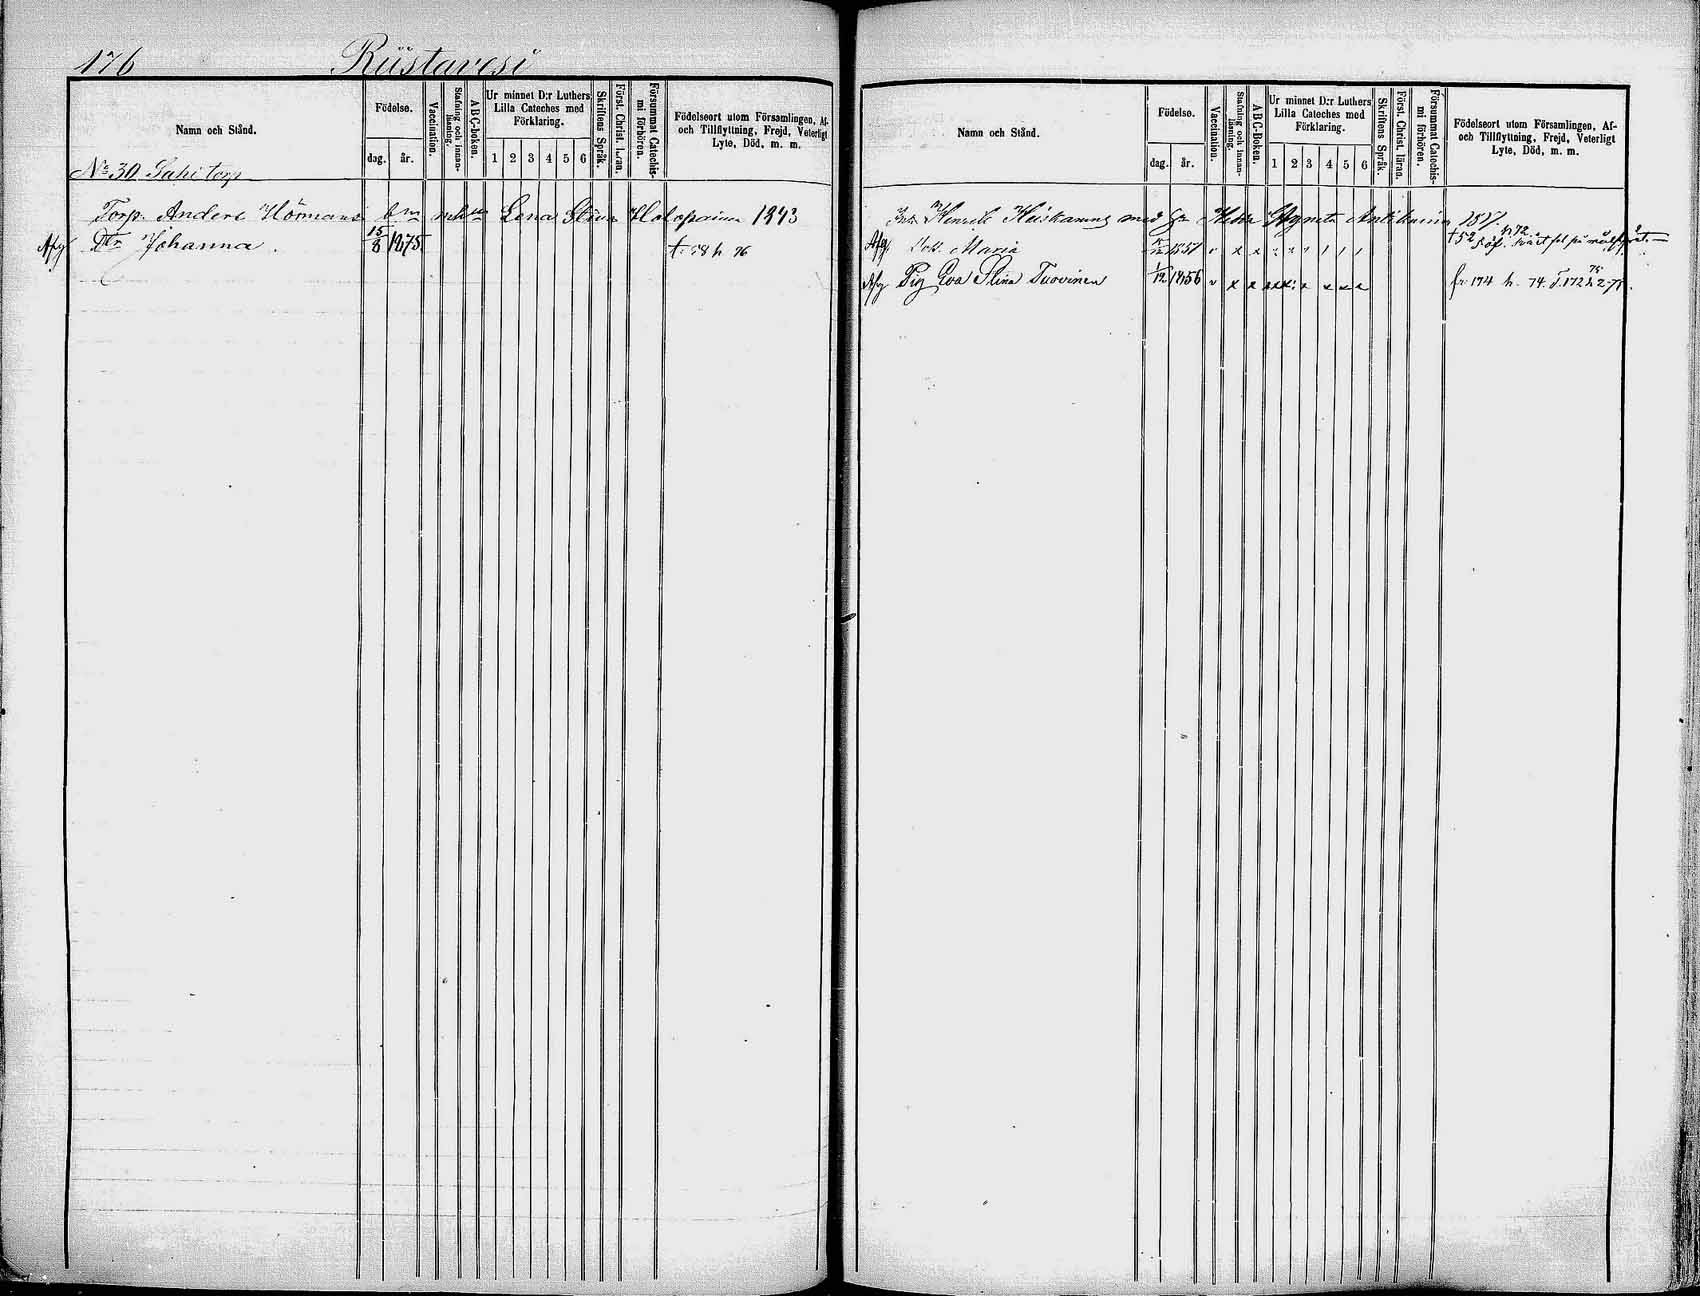 176 Riistavesi
Namn och Stånd.
Födelse.
dag. år.
Vaccination.
Stafning och innan-läsning.
ABC-boken.
Ur minnet D:r Luthers Lilla Cateches med Förklaring.
1 2 3 4 5 6
Skriftens Språk.
Först. Christ. läran.
Försummat Catechis-mi förhören.
Födelseort utom Församlingen, Af- och Tillflyttning, Frejd, Veterligt Lyte, Död, m. m.
No 30 Sahi torp
Torp. Anders Hörman Lena Stina Holopainen 1843
Afg Dtr Johanna. 15/8 1875 58 h 76
Namn och Stånd.
Födelse.
dag. år.
Vaccination.
Stafning och innan-läsning.
ABC-Boken.
Ur minnet D:r Luthers Lilla Cateches med Förklaring.
1 2 3 4 5 6
Skriftens Språk.
Först. Christ. läran.
Försummat Catechis-mi förhören.
Födelseort utom Församlingen, Af- och Tillflyttning, Frejd, Veterligt Lyte, Död, m. m.
Henrik Heiskanens med Agneta Antikainen
Afg Dott. Maria 1857
Afg Pig Eva Stina Tuovinen 1/12 1856 fr. 174 h. 74.